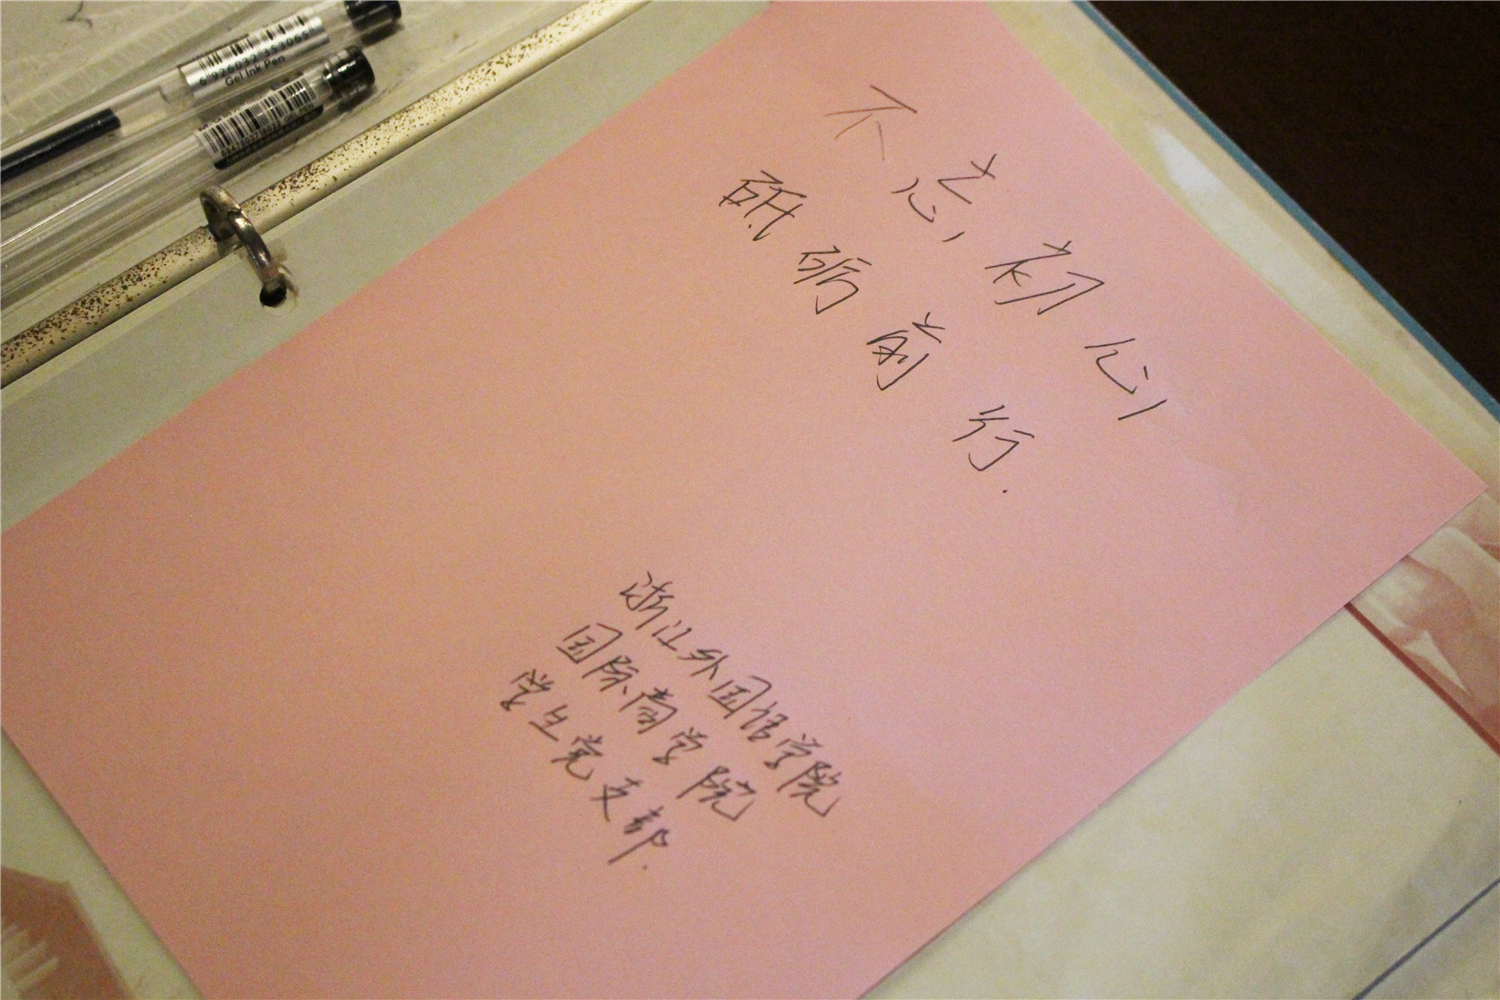 不忘初心
砥砺前行.
浙江外国语学院
国际商学院
学生党支部.
6926032353065
Gel Ink Pen